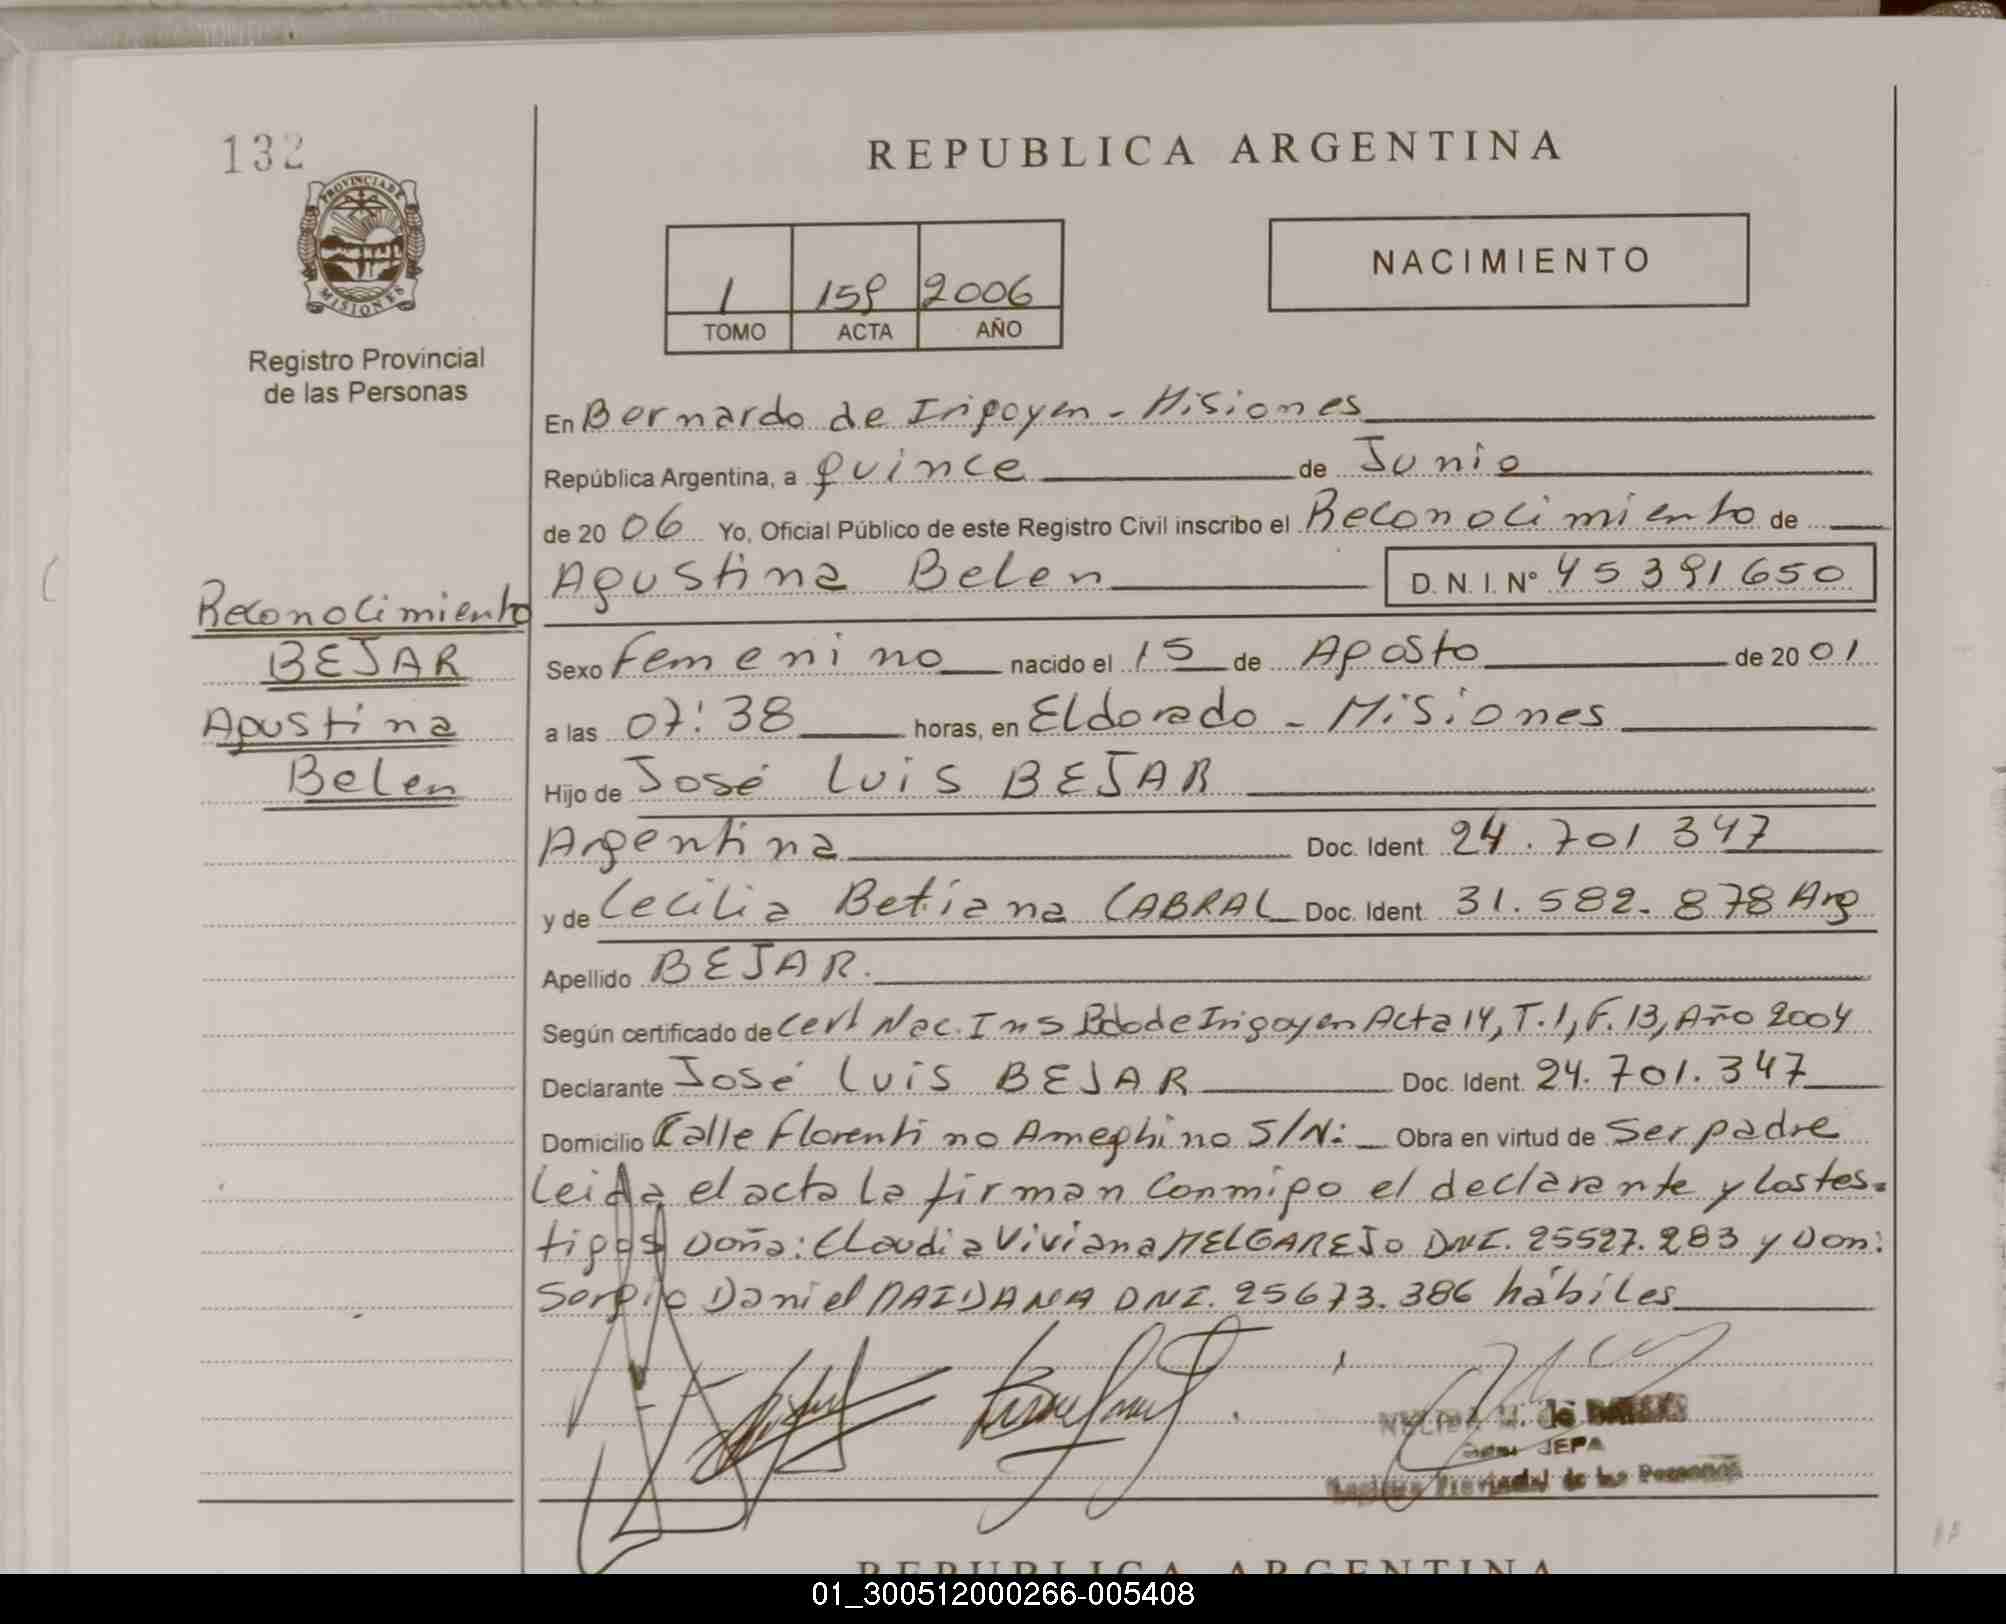 132
PROVINCIA DE
MISIONES
Registro Provincial
de las Personas
REPUBLICA ARGENTINA
1 159 2006
TOMO ACTA AÑO
NACIMIENTO
En Bernardo de Irigoyen - Misiones
República Argentina, a quince de Junio
de 20 06 Yo, Oficial Público de este Registro Civil inscribo el Reconocimiento de
Agustina Belen D. N. I. N° 45391650
Reconocimiento
BEJAR
Agustina
Belen
Sexo Femenino nacido el 15 de Agosto de 20 01
a las 07:38 horas, en Eldorado - Misiones
Hijo de José Luis BEJAR
Argentina Doc. Ident. 24.701 347
y de Cecilia Betiana CABRAL Doc. Ident. 31.582.878 Arg
Apellido BEJAR.
Según certificado de Cert Nac. Ins Bdo de Irigoyen Acta 14, T.1, F.13, Año 2004
Declarante José Luis BEJAR Doc. Ident. 24.701.347
Domicilio Calle Florentino Ameghino S/N: Obra en virtud de Ser padre
Leida el acta la firman Conmigo el declarante y los tes-
tigos Doña: Claudia Viviana MELGAREJO DNI. 25527.283 y Don:
Sergio Daniel MAIDANA DNI. 25673.386 hábiles
de
JEPA
Registro Provincial de las Personas
REPUBLICA ARGENTINA
01_300512000266-005408